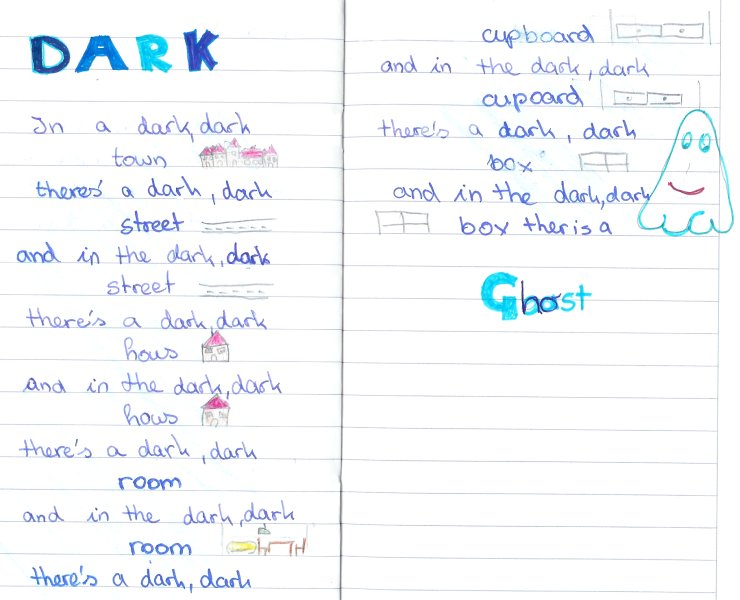 DARK
In a dark, dark
town
theres' a dark, dark
street
and in the dark, dark
street
there's a dark, dark
hows
and in the dark, dark
hows
there's a dark, dark
room
and in the dark, dark
room
there's a dark, dark
cupboard
and in the dark, dark
cupoard
there's a dark, dark
box
and in the dark, dark
box ther is a
Ghost